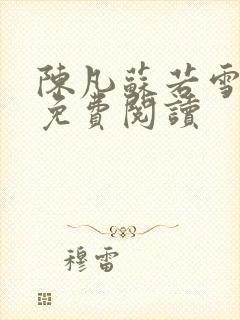 陳凡蘇若雪
免費閱讀
穆雷